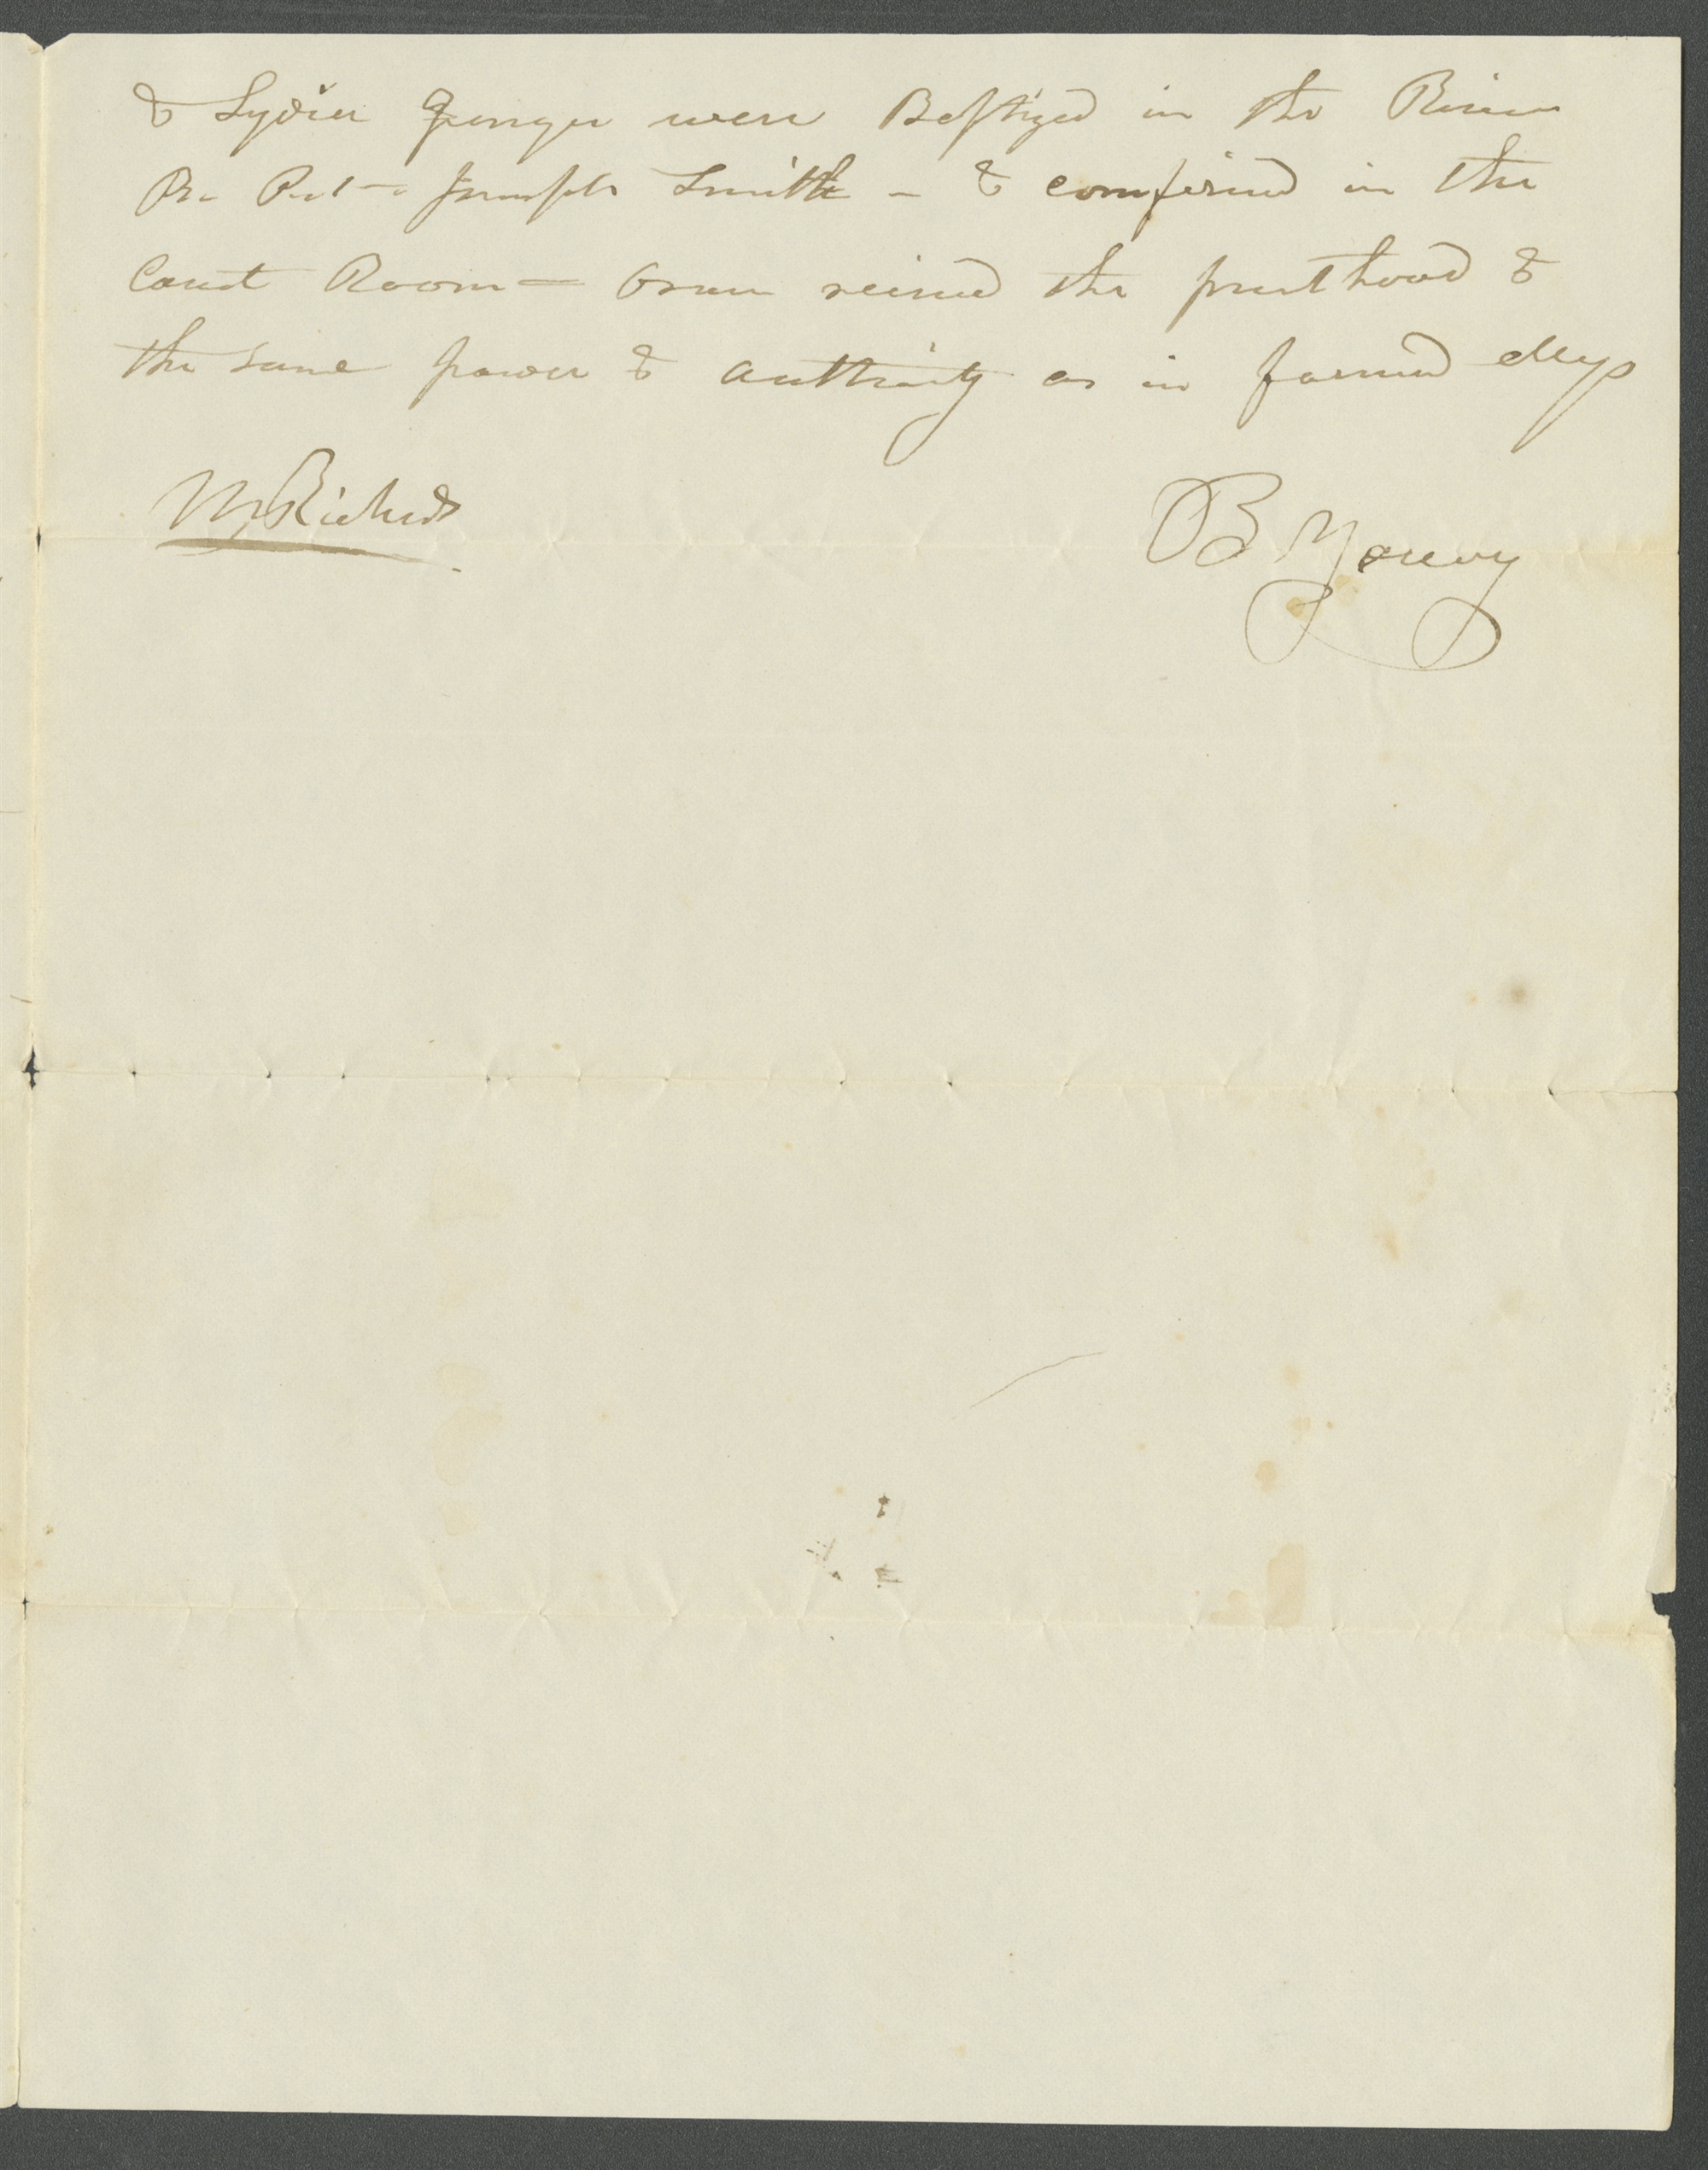 & Lydia Granger were Baptized in the River
By Pret- Joseph Smith - & comfirmd in the
Court Room = Oren reciued the priesthood &
the same power & authrity as in formed days
W Richards
B Young